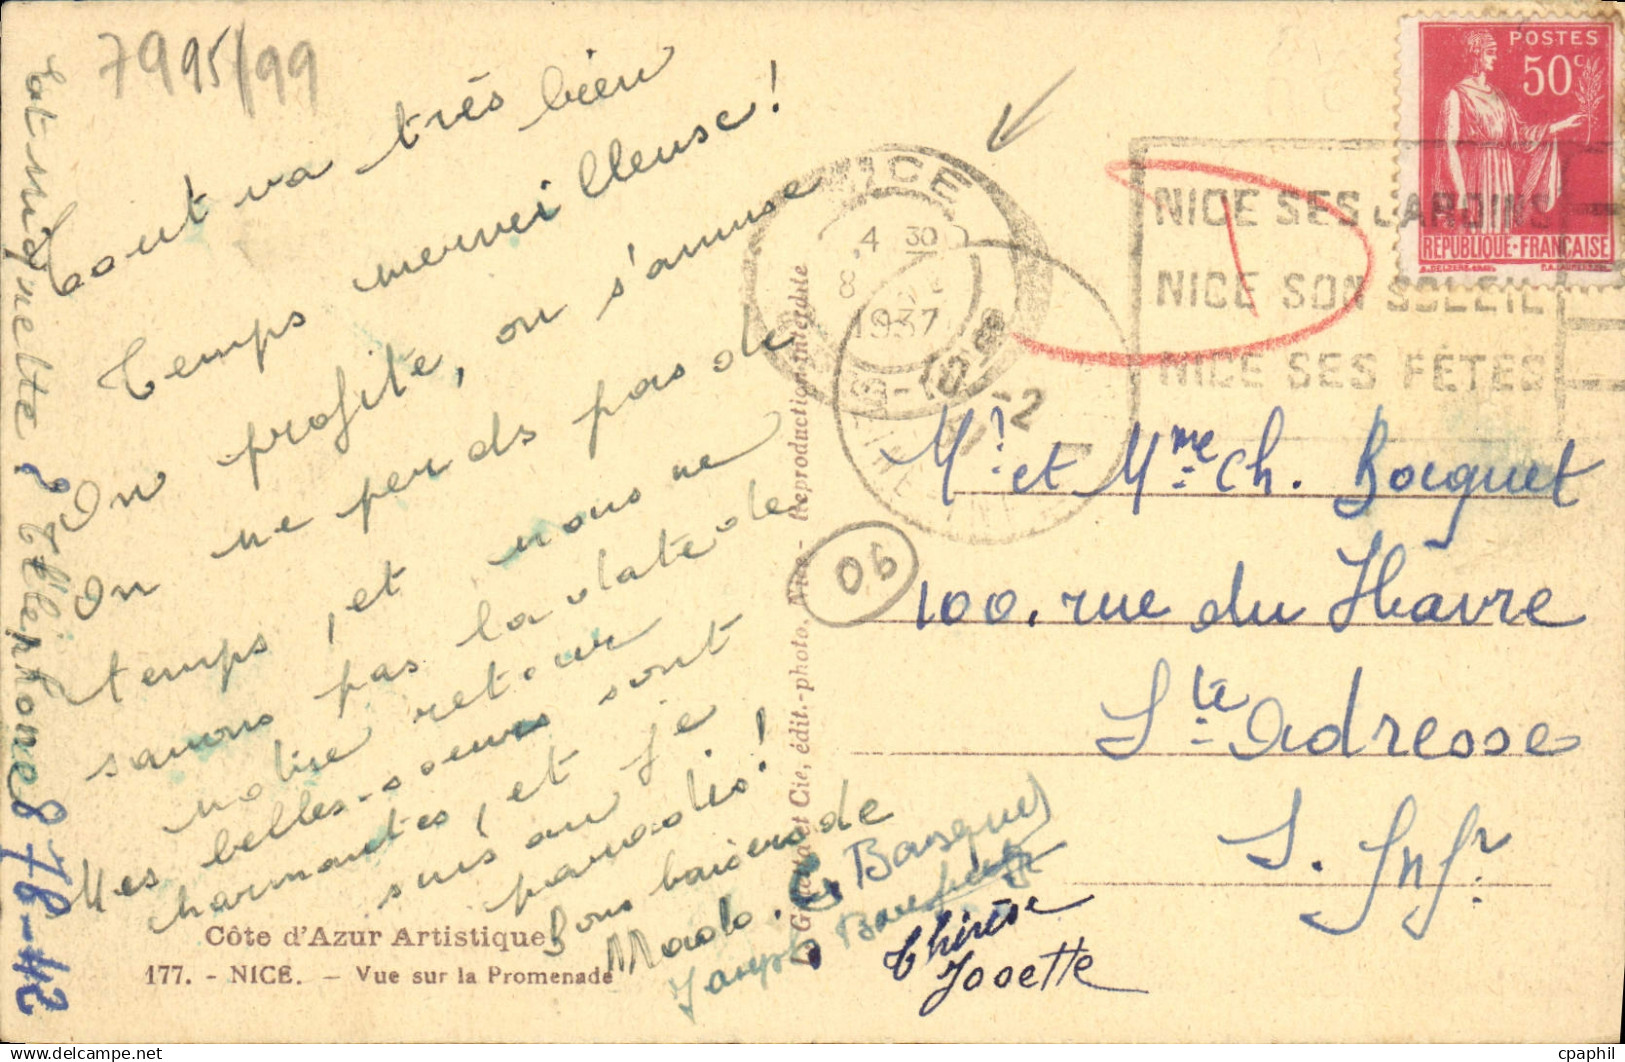 7995/99
Tout va très bien
Temps merveilleuse!
On profite, on s'amuse
On ne perds pas de
temps, et nous ne
savons pas la date de
notre retour
Mes belles-soeurs sont
charmantes, et je
suis au
paradis!
Bons baisers de
Mado.
Joseph
Thérèse
Josette
Et Mignette? Téléphone 878-42
Côte d'Azur Artistique
177. - NICE. - Vue sur la Promenade
et Cie, édit.-photo. Nice - Reproduction interdite
NICE
4 30
8
1937
10 -2
06
NICE SES JARDINS
NICE SON SOLEIL
NICE SES FÊTES
POSTES
50c
REPUBLIQUE·FRANÇAISE
Mr. et Mme Ch. Bocquet
100, rue du Hâvre
Ste Adresse
S. Infr
cpaphil